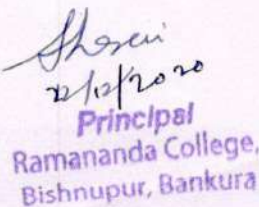 22/12/2020
Principal
Ramananda College,
Bishnupur, Bankura